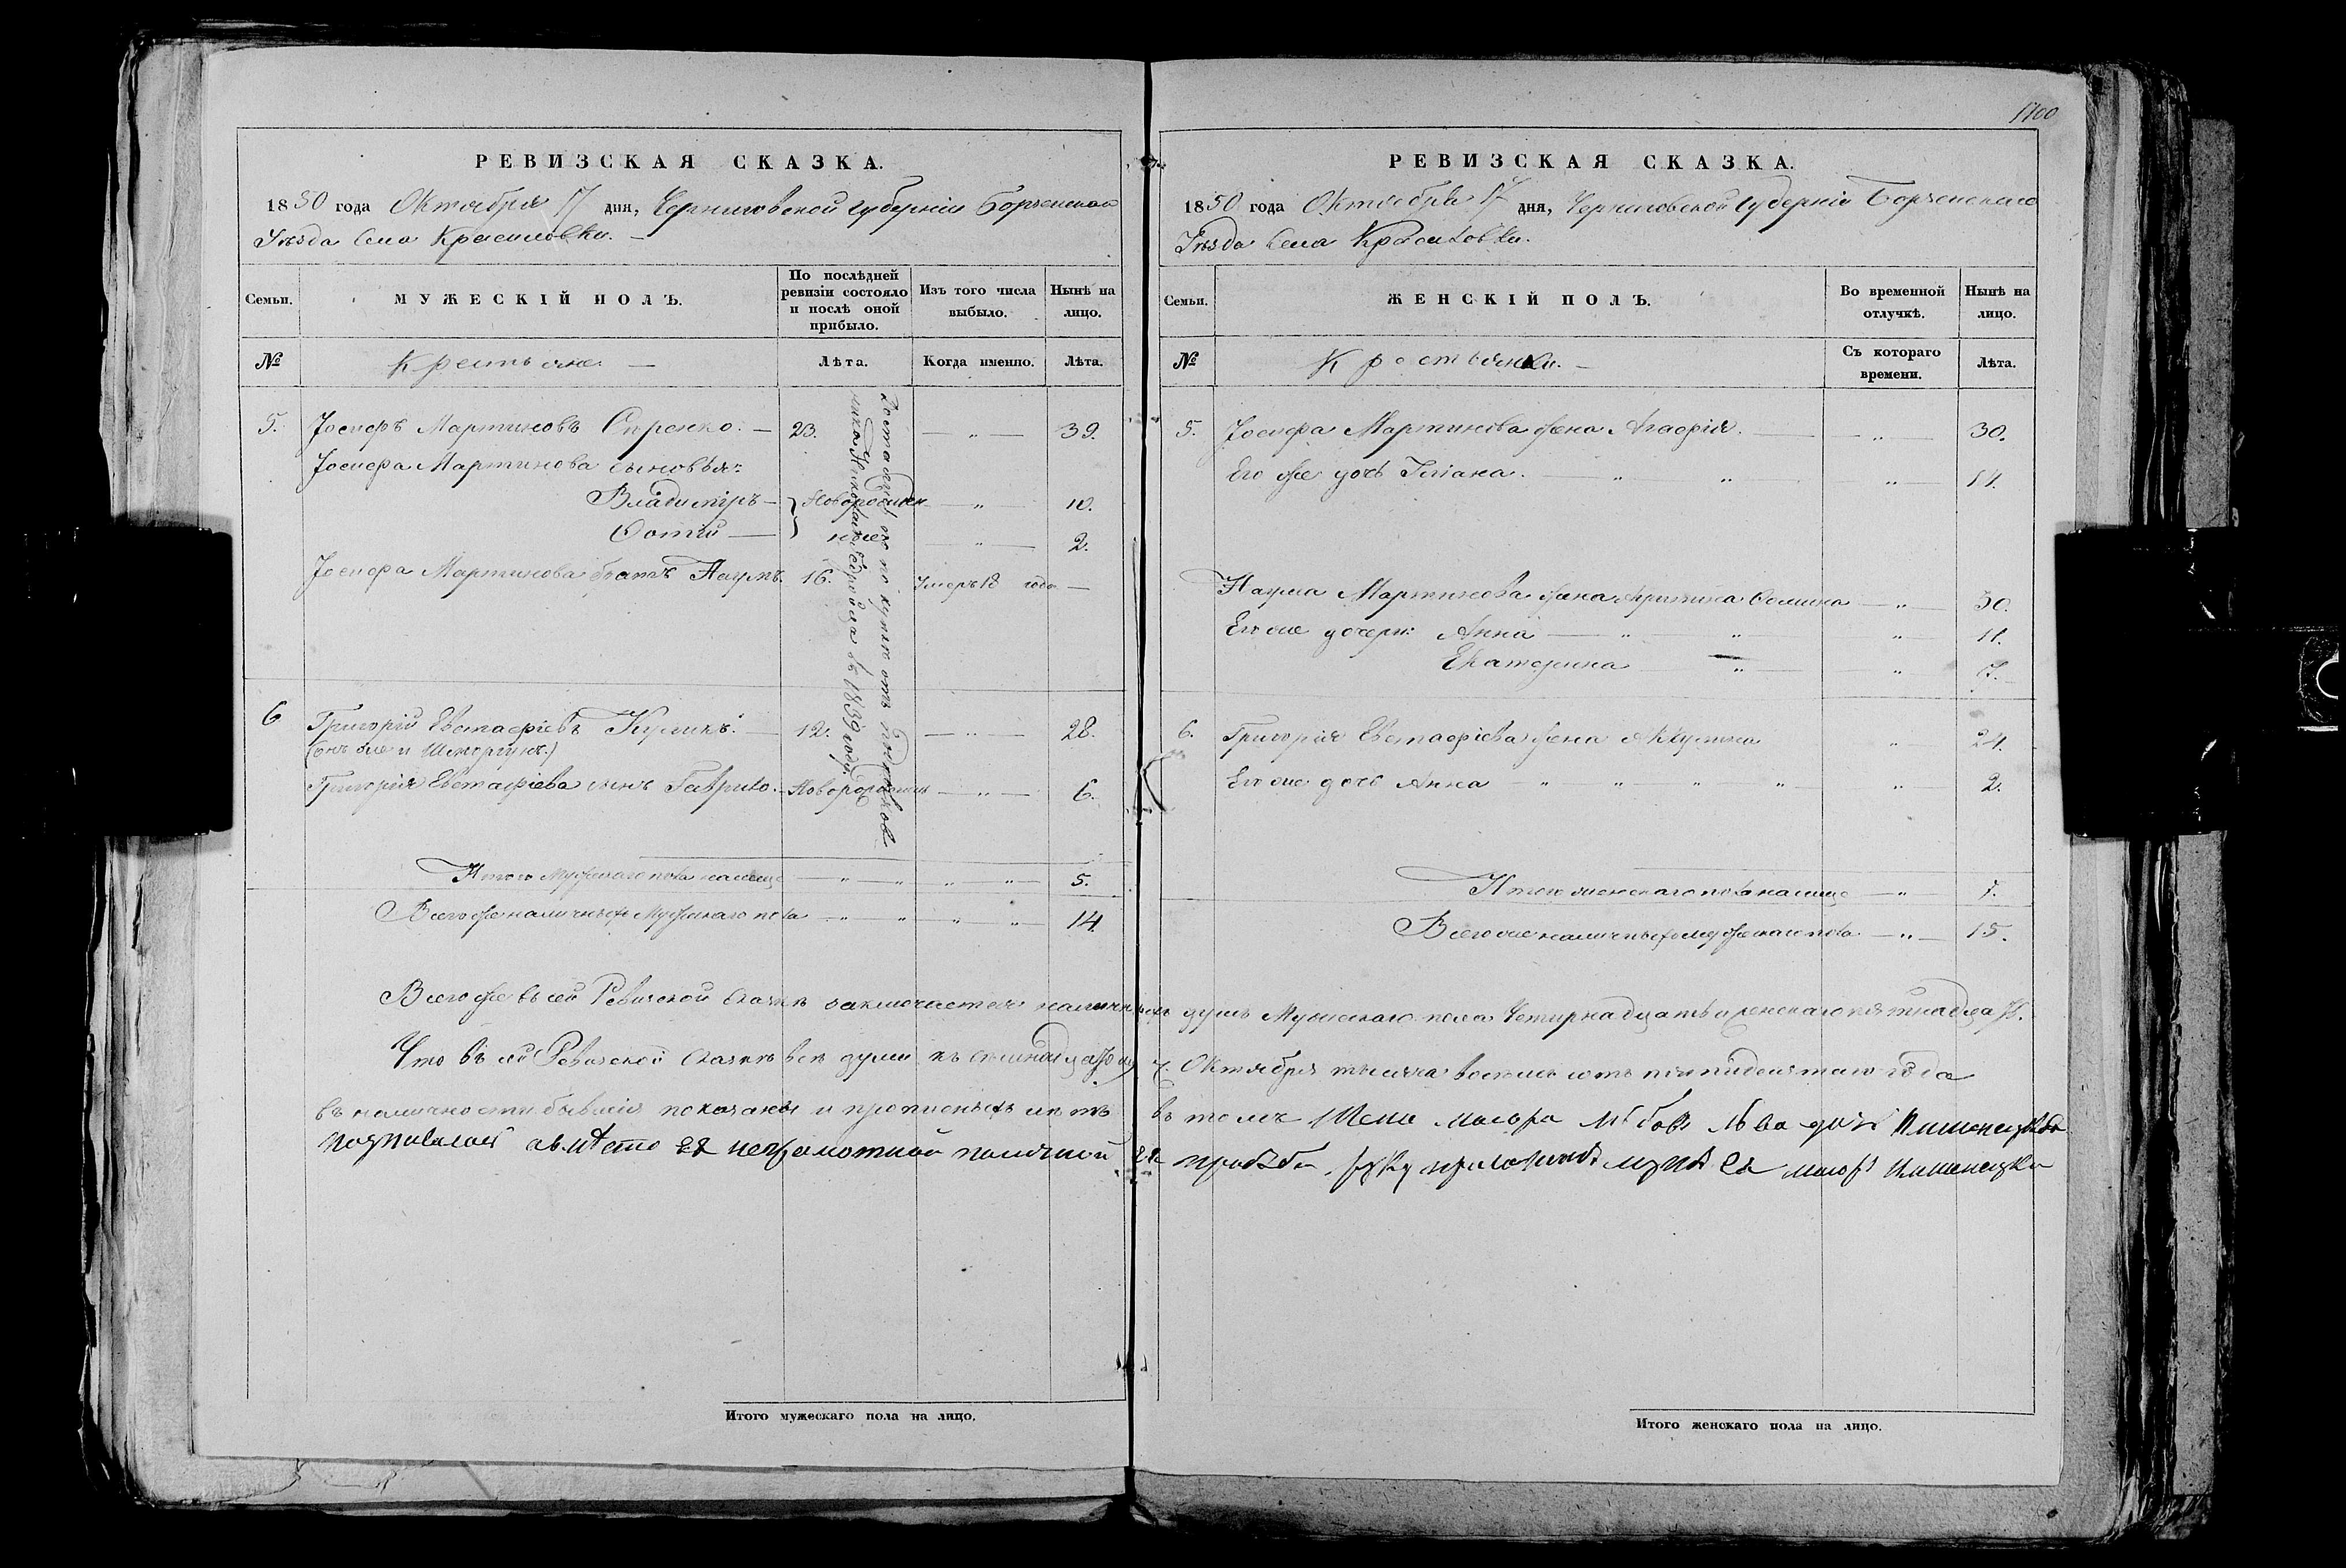 РЕВИЗСКАЯ СКАЗКА.
1850 года Октября 17 дня, Черниговской губерніи Борзенскаго
Уѣзда Села Красиловки.
Семьи. МУЖЕСКІЙ ПОЛЪ. По послѣдней ревизіи состояло и послѣ оной прибыло. Изъ того числа выбыло. Нынѣ на лицо.
№ Крестьяне Лѣта. Когда именно. Лѣта.
5. Іосифъ Мартиновъ 23. — „ — 39.
Іосифа Мартинова сыновья:
Владиміръ — Новорожден — „ — 10.
Фотій — ные — „ — 2.
Іосифа Мартинова братъ Наумъ. 16. Умеръ 18 года —
6 Григорій Евстафіевъ Куликъ. — 12. — „ — 28.
(онъ же и)
Григорія Евстафіева сынъ Гаврило. — Новорожденъ — „ — 6.
Достались по купле отъ
въ 1839 году
Итого Мужескаго пола налицо — „ — „ „ — „ — 5.
Всего же наличныхъ Мужескаго пола — „ „ „ „ — 14.
Итого мужескаго пола на лицо.
1100
РЕВИЗСКАЯ СКАЗКА.
1850 года Октября 17 дня, Черниговской губерніи Борзенскаго
Уѣзда Села Красиловки.
Семьи. ЖЕНСКІЙ ПОЛЪ. Во временной отлучкѣ. Нынѣ на лицо.
№ Крестьянки. — Съ котораго времени. Лѣта.
5. Іосифа Мартинова жена Агафія. — „ — 30.
Его же дочь — „ — „ — „ — 14.
Наума Мартинова жена Фомина — „ — 30.
Его же дочери: Анна — „ — „ „ 11.
Екатерина „ — „ 7.
6. Григорія Евстафіева жена Акулина „ — 24.
Его же дочь Анна — „ — „ — „ „ — „ — 2.
Итого женскаго пола налицо — „ — 7.
Всего же наличныхъ женскаго пола — „ — 15.
Всего же въ сей Ревизской Сказкѣ заключается наличныхъ душъ Мужескаго пола Четырнадцать и женскаго пятнадцать.
Что въ сей Ревизской Сказкѣ всѣ души къ семнадцатому Октября тысяча восемь сотъ пятидесятаго года
въ наличности бывшія показаны и прописныхъ нѣтъ въ томъ Жена маіора
подписалась а вместо ея неграмотной по личной ея прозьби руку приложилъ мужъ ея маіоръ
Итого женскаго пола на лицо.